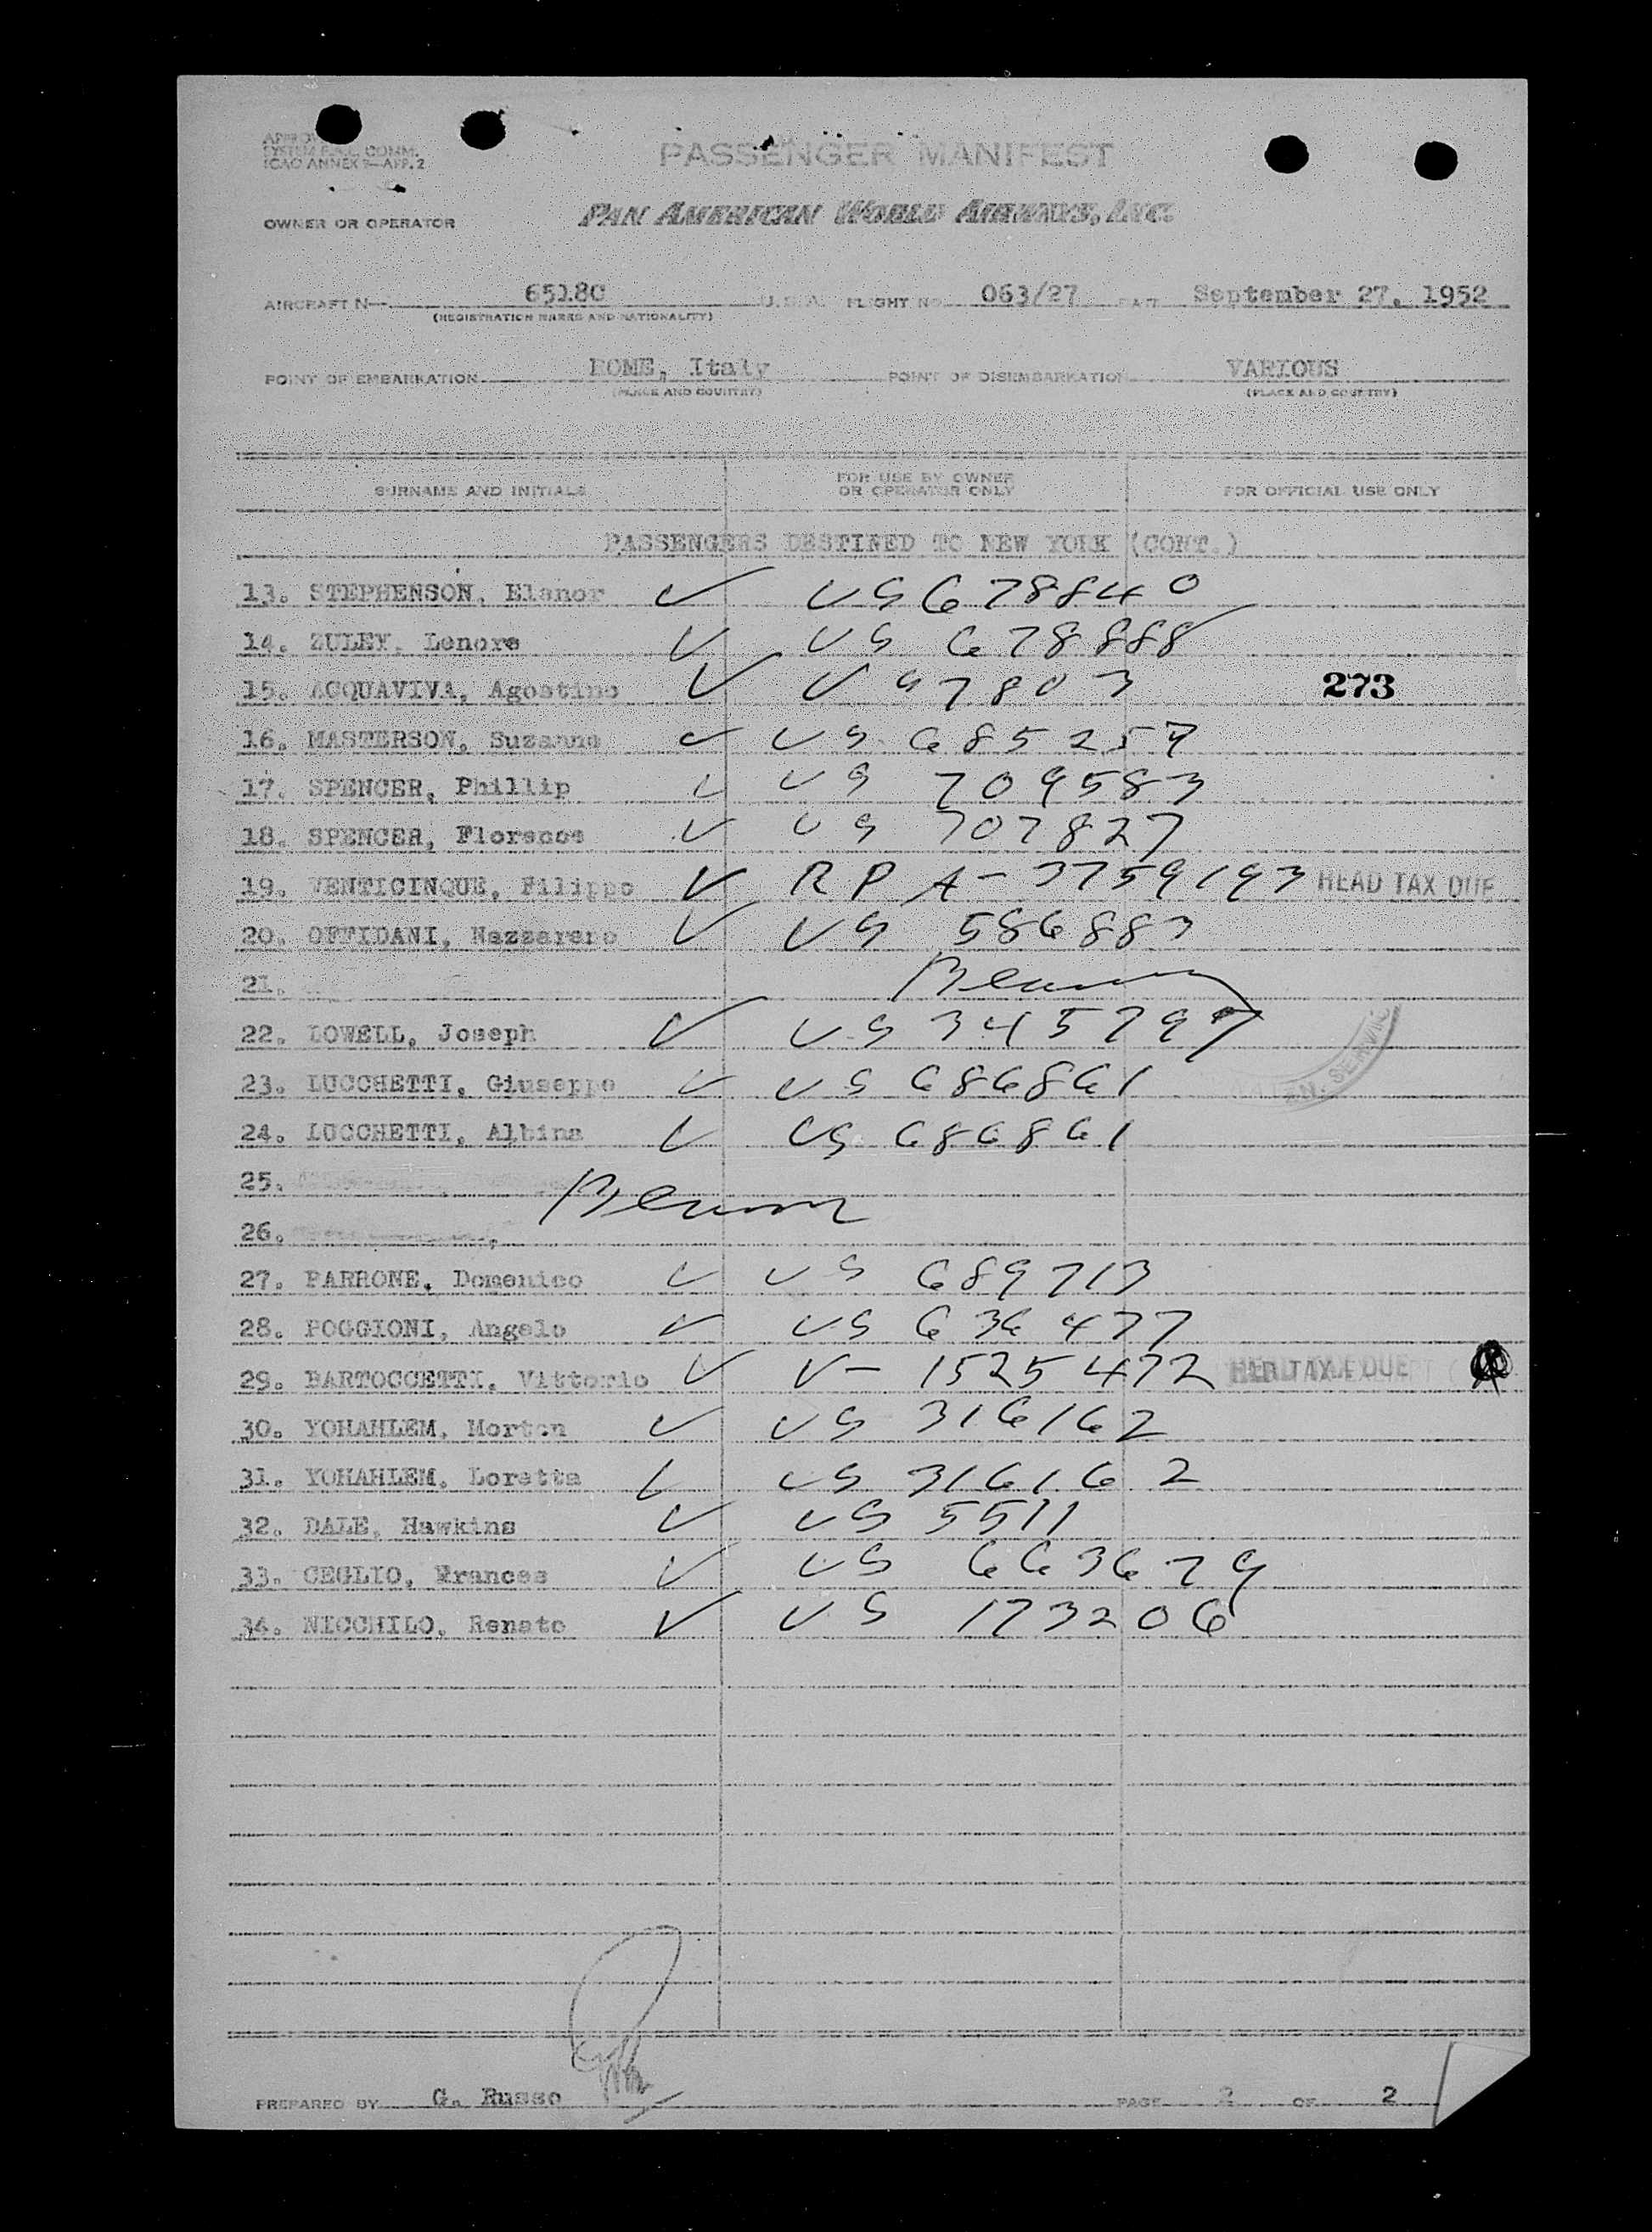 SYSTEM F.A.L. COMM.
ICAO ANNEX 9—APP. 2
PASSENGER MANIFEST
OWNER OR OPERATOR PAN AMERICAN WORLD AIRWAYS, INC.
AIRCRAFT N— 65180 U.S.A. FLIGHT NO. 063/27 DATE September 27. 1952
(REGISTRATION MARKS AND NATIONALITY)
POINT OF EMBARKATION ROME, Italy POINT OF DISEMBARKATION VARIOUS
(PLACE AND COUNTRY) (PLACE AND COUNTRY)
SURNAME AND INITIALS FOR USE BY OWNER OR OPERATOR ONLY FOR OFFICIAL USE ONLY
PASSENGERS DESTINED TO NEW YORK (CONT.)
13. STEPHENSON, Elanor ✓ US 678840
14. ZULEY, Lenore ✓ US 678888
15. ACQUAVIVA, Agostino ✓ 273
16. MASTERSON, Suzanne ✓ US 685257
17. SPENCER, Phillip ✓ US 709583
18. SPENCER, Florence ✓ US 707827
19. VENTICINQUE, Filippo ✓ RP A-3759193 HEAD TAX DUE
20. OFFIDANI, Nazzareno ✓ US 586883
21.
22. LOWELL, Joseph ✓ US 345797
23. LUCCHETTI, Giuseppe ✓ US 686861
24. LUCCHETTI, Albina ✓ US 686861
25.
26.
27. BARRONE, Domenico ✓ US 689713
28. POGGIONI, Angelo ✓ US 636477
29. BARTOCCETTI, Vittorio ✓ V- 1525472
30. YOHAHLEM, Morton ✓ US 316162
31. YOHAHLEM, Loretta ✓ US 316162
32. DALE, Hawkins ✓ US 5511
33. CEGLIO, Frances ✓ US 663679
34. NICCHILO, Renato ✓ US 173206
PREPARED BY G. Russo PAGE 2 OF 2